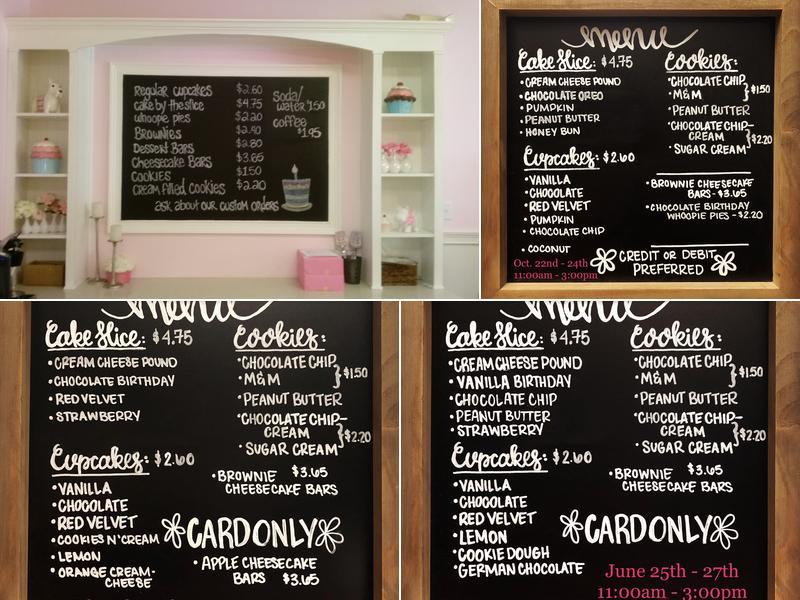 Regular cupcakes $2.60
cake by the slice $4.75
whoopie pies $2.20
Brownies $2.40
Dessert Bars $2.80
Cheesecake Bars $3.65
Cookies $1.50
cream filled cookies $2.20
ask about our custom orders
Soda/
water $1.50
coffee
$1.95
menu
Cake Slice: $4.75
• CREAM CHEESE POUND
• CHOCOLATE OREO
• PUMPKIN
• PEANUT BUTTER
• HONEY BUN
Cupcakes: $2.60
• VANILLA
• CHOCOLATE
• RED VELVET
• PUMPKIN
• CHOCOLATE CHIP
• COCONUT
Oct. 22nd - 24th
11:00am - 3:00pm
Cookies:
• CHOCOLATE CHIP
• M&M } $1.50
• PEANUT BUTTER
• CHOCOLATE CHIP-
CREAM
• SUGAR CREAM } $2.20
• BROWNIE CHEESECAKE
BARS - $3.65
• CHOCOLATE BIRTHDAY
WHOOPIE PIES - $2.20
CREDIT OR DEBIT
PREFERRED
menu
Cake Slice: $4.75
• CREAM CHEESE POUND
• CHOCOLATE BIRTHDAY
• RED VELVET
• STRAWBERRY
Cupcakes: $2.60
• VANILLA
• CHOCOLATE
• RED VELVET
• COOKIES N' CREAM
• LEMON
• ORANGE CREAM-
CHEESE
Cookies:
• CHOCOLATE CHIP
• M&M } $1.50
• PEANUT BUTTER
• CHOCOLATE CHIP-
CREAM
• SUGAR CREAM } $2.20
• BROWNIE $3.65
CHEESECAKE BARS
CARD ONLY
• APPLE CHEESECAKE
BARS $3.65
menu
Cake Slice: $4.75
• CREAM CHEESE POUND
• VANILLA BIRTHDAY
• CHOCOLATE CHIP
• PEANUT BUTTER
• STRAWBERRY
Cupcakes: $2.60
• VANILLA
• CHOCOLATE
• RED VELVET
• LEMON
• COOKIE DOUGH
• GERMAN CHOCOLATE
Cookies:
• CHOCOLATE CHIP
• M&M } $1.50
• PEANUT BUTTER
• CHOCOLATE CHIP-
CREAM
• SUGAR CREAM } $2.20
• BROWNIE $3.65
CHEESECAKE BARS
CARD ONLY
June 25th - 27th
11:00am - 3:00pm